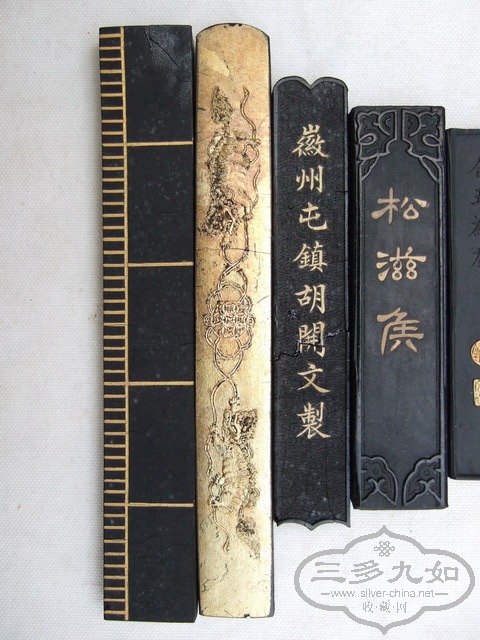 徽州屯鎮胡開文製
松滋侯
三多九如
www.silver-china.net
收·藏·网